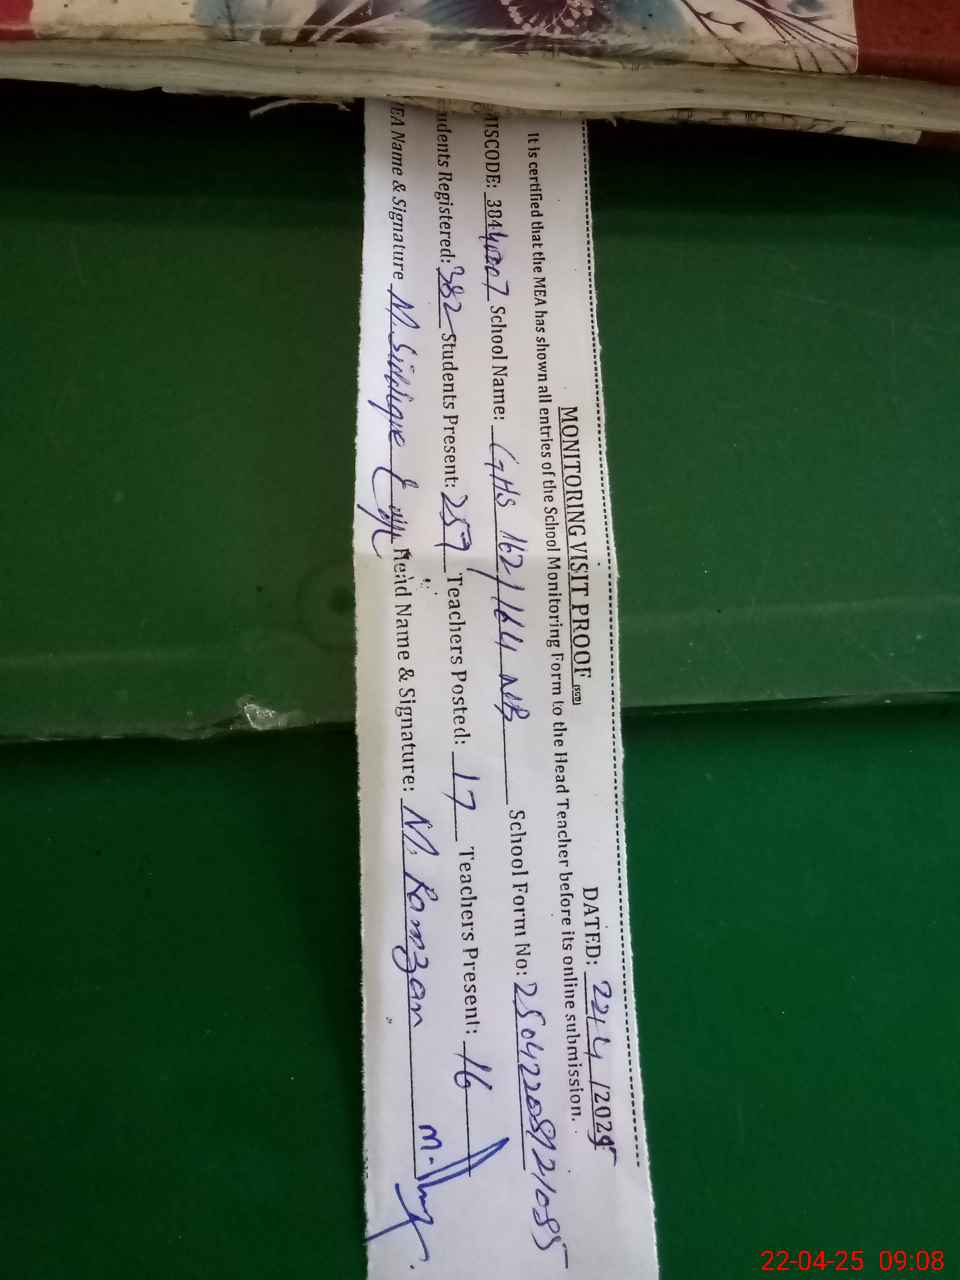 MONITORING VISIT PROOF
DATED: 22/4/2025
It is certified that the MEA has shown all entries of the School Monitoring Form to the Head Teacher before its online submission.
MISCODE: School Name: GHS 162/164 NB School Form No:
udents Registered: 382 Students Present: 257 Teachers Posted: 17 Teachers Present: 16
EA Name & Signature M. Siddique Head Name & Signature: M. Ramzan
22-04-25 09:08